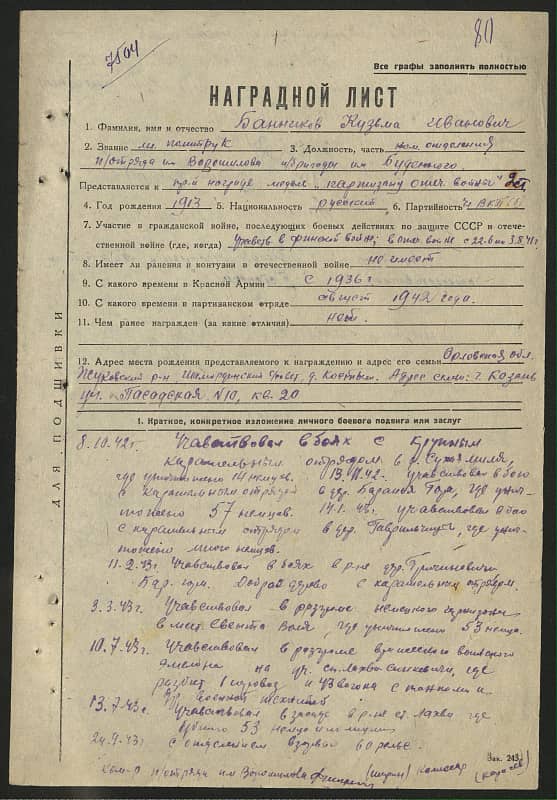 7504
80
Все графы заполнять полностью
НАГРАДНОЙ ЛИСТ
1. Фамилия, имя и отчество Банников Кузьма Иванович
2. Звание мл политрук 3. Должность, часть ком. отделения
п/отряда им Ворошилова п/бригады им Буденного
Представляется к награде медаль "партизану отеч. войны" 2ст
4. Год рождения 1913 5. Национальность русский 6. Партийность ч ВКП(б)
7. Участие в гражданской войне, последующих боевых действиях по защите СССР и отече-
ственной войне (где, когда) в финской войне, в отеч. войне с 22.6
8. Имеет ли ранения и контузии в отечественной войне не имеет
9. С какого времени в Красной Армии с 1936г
10. С какого времени в партизанском отряде август 1942 года.
11. Чем ранее награжден (за какие отличия)
12. Адрес места рождения представляемого к награждению и адрес его семьи Орловская обл.
Жуковский р-н д. Адрес семьи: г. Казань
ул. Посадская №10, кв. 20
ДЛЯ ПОДШИВКИ
1. Краткое, конкретное изложение личного боевого подвига или заслуг
8.10.42г. Учавствовал в боях с крупным
карательным отрядом в д. Сухая Миля,
где уничтожено 14 немцев. 13. .42. учавствовал в бою
с карательным отрядом в дер. Баранья Гора, где унич-
тожено 57 немцев. 14.1.43г. учавствовал в бою
с карательным отрядом в дер. Гаврильчицы, где унич-
тожено много немцев.
11.2.43г. Учавствовал в боях в р-не дер.
Бар. гора. Доброе дерево с карательным отрядом.
3.3.43г. Учавствовал в разгроме немецкого гарнизона
в мест. Свента Воля, где уничтожено 53 немца.
10.7.43г. Учавствовал в разгроме вражеского воинского
эшелона на уч. ст. Лахва-Синкевичи, где
разбит 1 паровоз и вагона с танками и
др военной техникой
13.7.43г. Учавствовал в засаде в р-не ст. Лахва где
убито 53 немца и полицая
с отделением взорвал 60 рельс.
Зак. 243
Ком-р п/отряда им Ворошилова комиссар